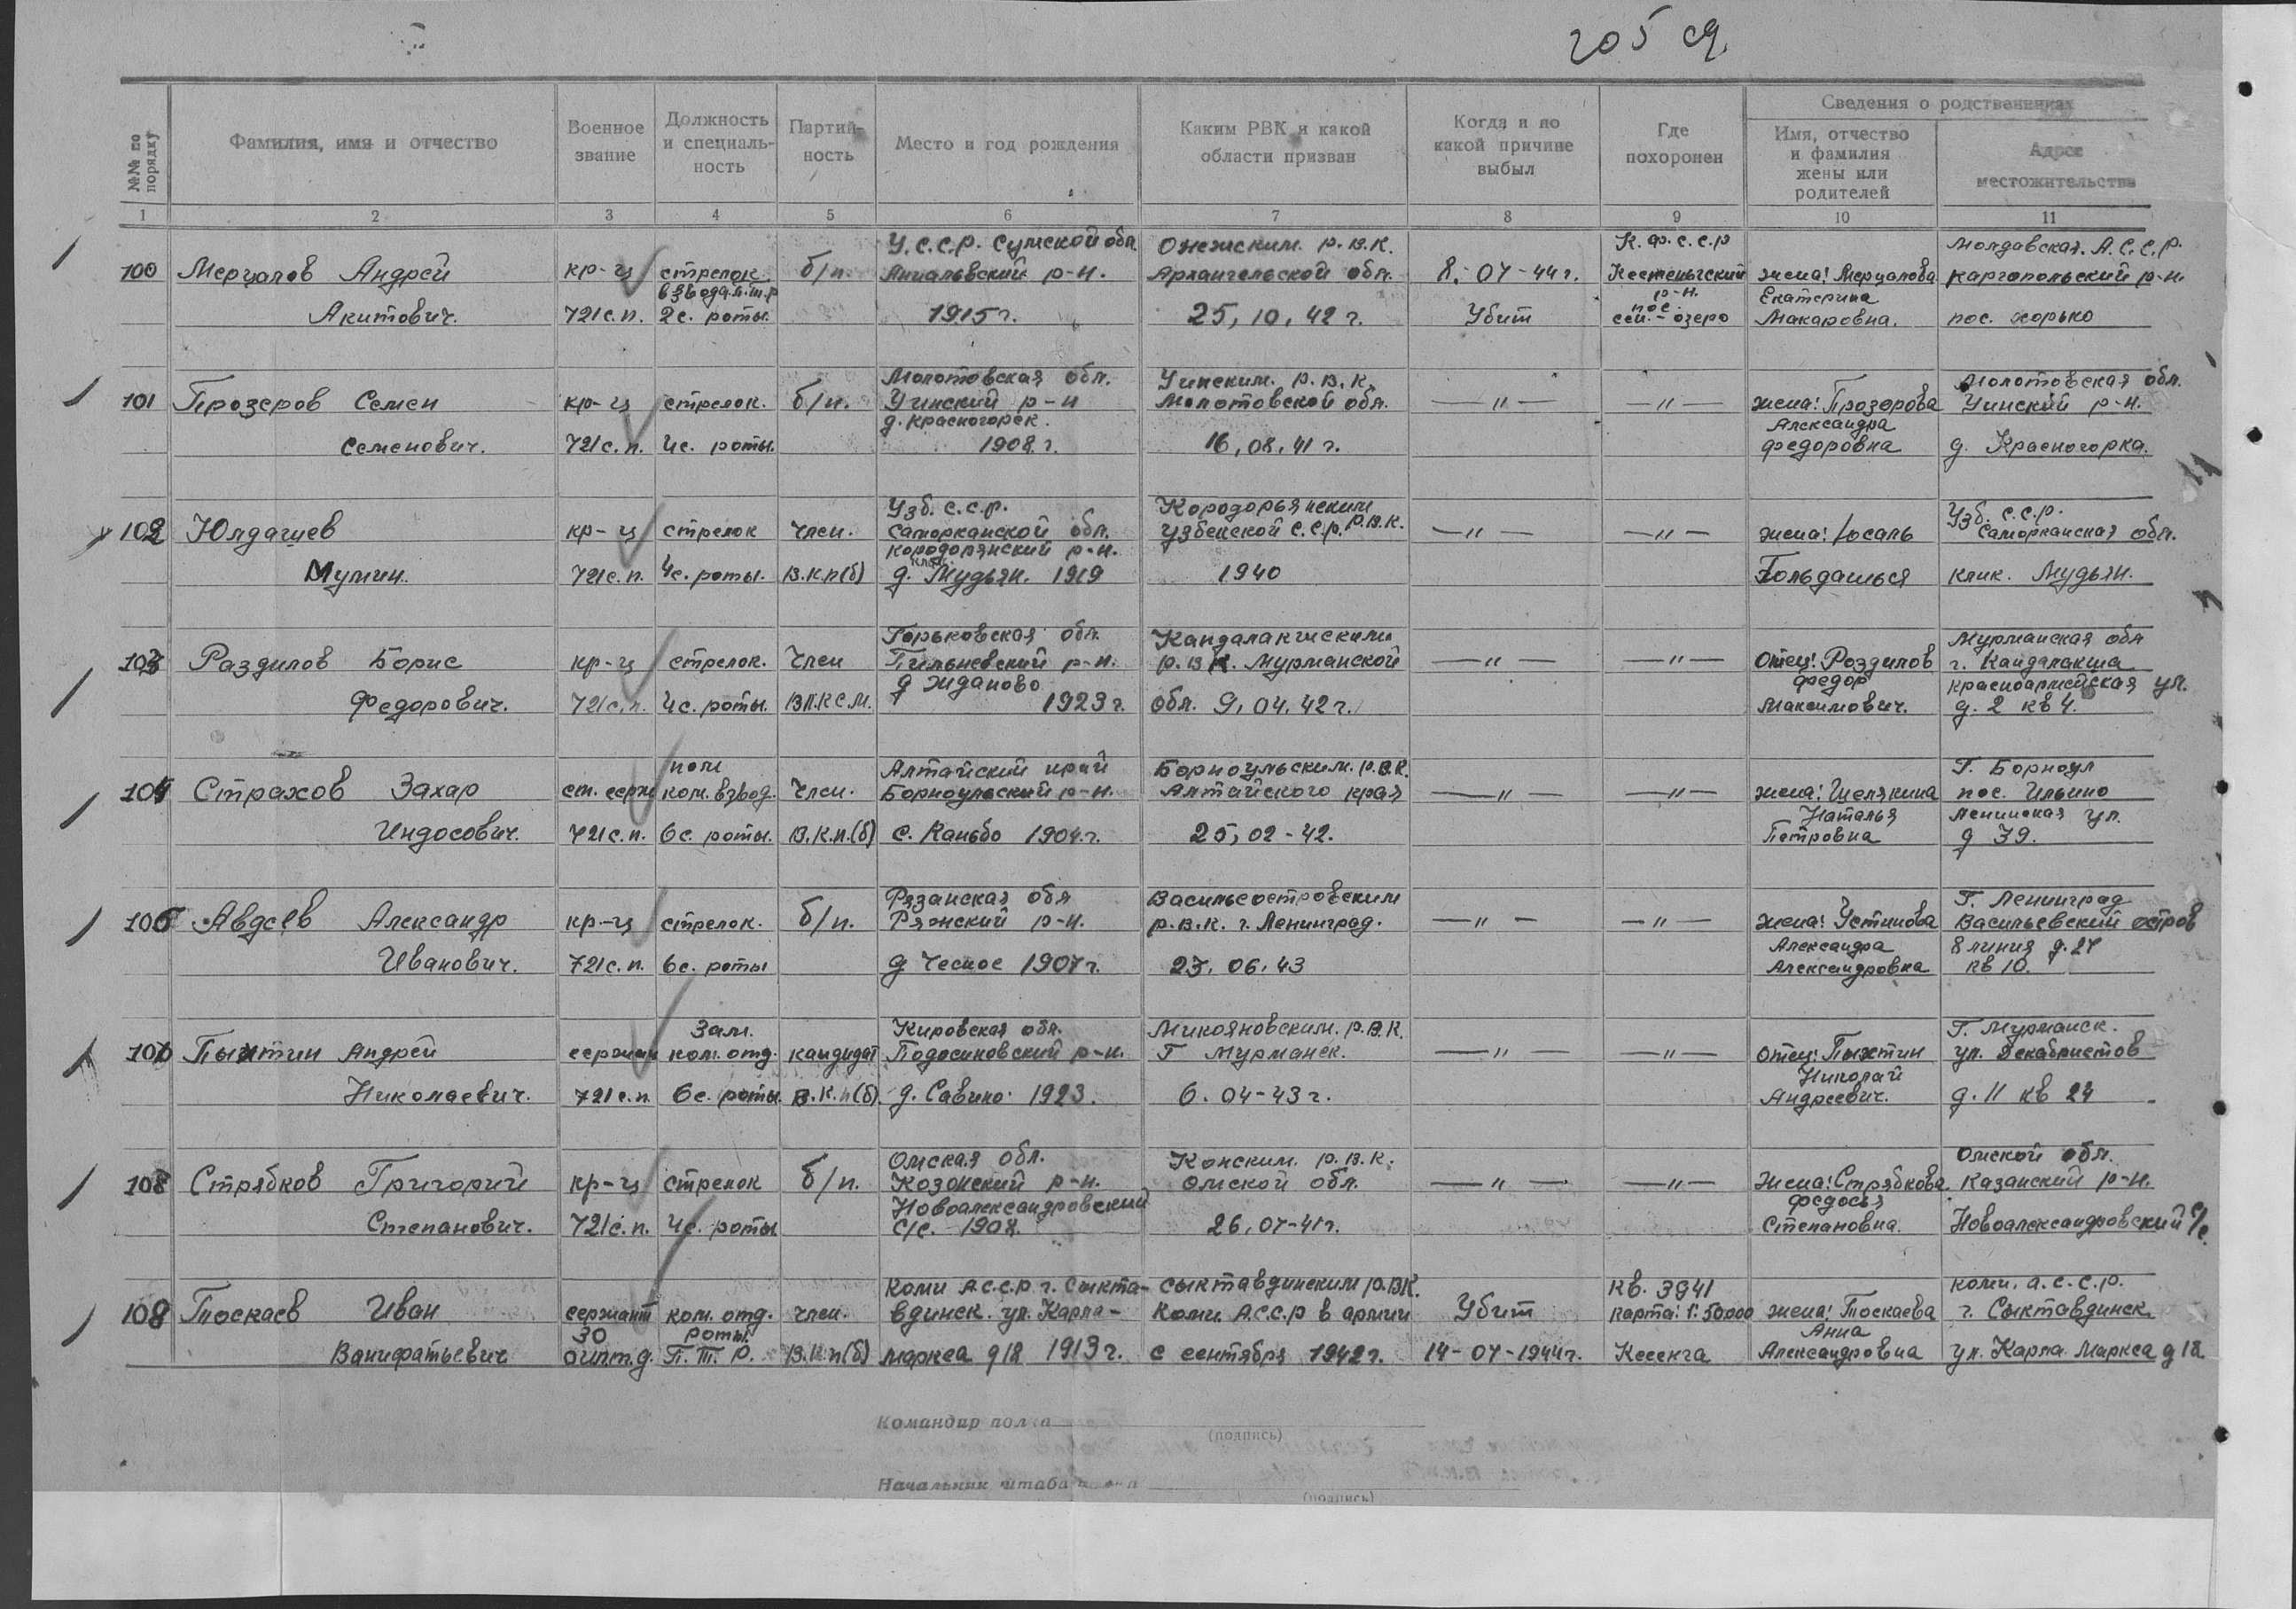 205 сд.
№№ по порядку
Фамилия, имя и отчество
Военное звание
Должность и специаль-ность
Партий-ность
Место и год рождения
Каким РВК и какой области призван
Когда и по какой причине выбыл
Где похоронен
Сведения о родственниках
Имя, отчество и фамилия жены или родителей
Адрес местожительства
1 2 3 4 5 6 7 8 9 10 11
У.С.С.Р. Сумской обл. Онежским. р.в.к. К.Ф.С.С.Р Молдавская. А.С.С.Р.
100 Мерцалов Андрей кр-ц стрелок б/п. р-н. Архангельской обл. 8.-07-44г. Кестеньгский жена: Мерцалова каргопольский р-н.
взвода р-н. Екатерина
Акитович. 721с.п. 2с. роты. 1915г. 25,10,42г. Убит пос. сен.-озеро Макаровна. пос. хорько
Молотовская обл. Уинским. р.в.к. Молотовская обл.
101 Прозеров Семен кр-ц стрелок. б/п. Уинский р-н Молотовской обл. —"— —"— жена: Прозорова Уинский р-н.
д. красногорск. Александра
Семенович. 721с.п. 4с. роты. 1908.г. 16,08,41г. федоровна д. Красногорка.
Узб. С.С.Р. Кородорьянским Узб. С.С.Р.
102 Юлдашев кр-ц стрелок член. Саморканской обл. Узбекской С.С.Р. р.в.к. —"— —"— жена: Юсаль Саморканская обл.
кородорянский р-н.
Мумин. 721с.п. 4с. роты. В.К.п(б) д. Мудьян. 1919 1940 Гольдашься клик. Мудьян.
Горьковская обл. Кандалакшскими Мурманская обл
103 Раздилов Борис кр-ц стрелок. Член Пильневский р-н. р.в.к. Мурманской —"— —"— Отец: Роздилов г. Кандалакша
д Жданово федор красноармейская ул.
Федорович. 721с.п. 4с. роты. ВЛ.КСМ. 1923г. обл. 9,04,42г. Максимович. д. 2 кв 4.
пом Алтайский край Борноульским. р.в.к. Г. Борноул
104 Страхов Захар ст. серж ком. взвод. Член. Борноульский р-н. Алтайского края —"— —"— жена: Шелякина пос. Ильино
Наталья Ленинская ул.
Индосович. 721с.п. 6с. роты. В.К.п.(б) с. Каньбо 1904.г. 25,02-42. Петровна д 39.
Рязанская обл Васильеостровским Г. Ленинград
106 Авдеев Александр кр-ц стрелок. б/п. Ряжский р-н. р.в.к. г. Ленинград. —"— —"— жена: Устинова Васильевский остров
Александра 8 линия д.27
Иванович. 721с.п. 6с. роты д Чесное 1907г. 23.06.43 Александровна кв 10.
Зам. Кировская обл. Микояновским. р.в.к. Г. Мурманск.
106 Пыхтин Андрей сержан ком. отд. кандидат Подосиновский р-н. Г Мурманск. —"— —"— отец: Пыхтин ул. Декабристов
Николай
Николаевич. 721с.п. 6с. роты. В.К.п(б). д. Савино. 1923. 6.04-43г. Андреевич. д. 11 кв 24
Омская обл. Конским. р.в.к. Омской обл.
108 Стрябков Григорий кр-ц стрелок б/п. Козонский р-н. Омской обл. —"— —"— Жена: Стрябкова Казанский р-н.
Новоалександровский федосья
Степанович. 721с.п. 4с. роты с/с. 1908. 26.07-41г. Степановна. Новоалександровский с/с.
Коми А.С.С.Р г. Сыкта- Сыктавдинским р.в.к. КВ. 3941 коми. а.с.с.р.
108 Тоскаев Иван сержант ком. отд. член. вдинск. ул. Карла- Коми. А.С.С.Р в армии Убит карта: 1:50000 жена: Тоскаева г. Сыктавдинск
30 роты. Анна
Ванифатьевич оиптд. П.Т.Р. В.К.п(б) маркса д18 1913г. с сентября 1942г. 14-07-1944г. Кесенга Александровна ул. Карла Маркса д 18.
Командир полка
(подпись)
Начальник штаба
(подпись)